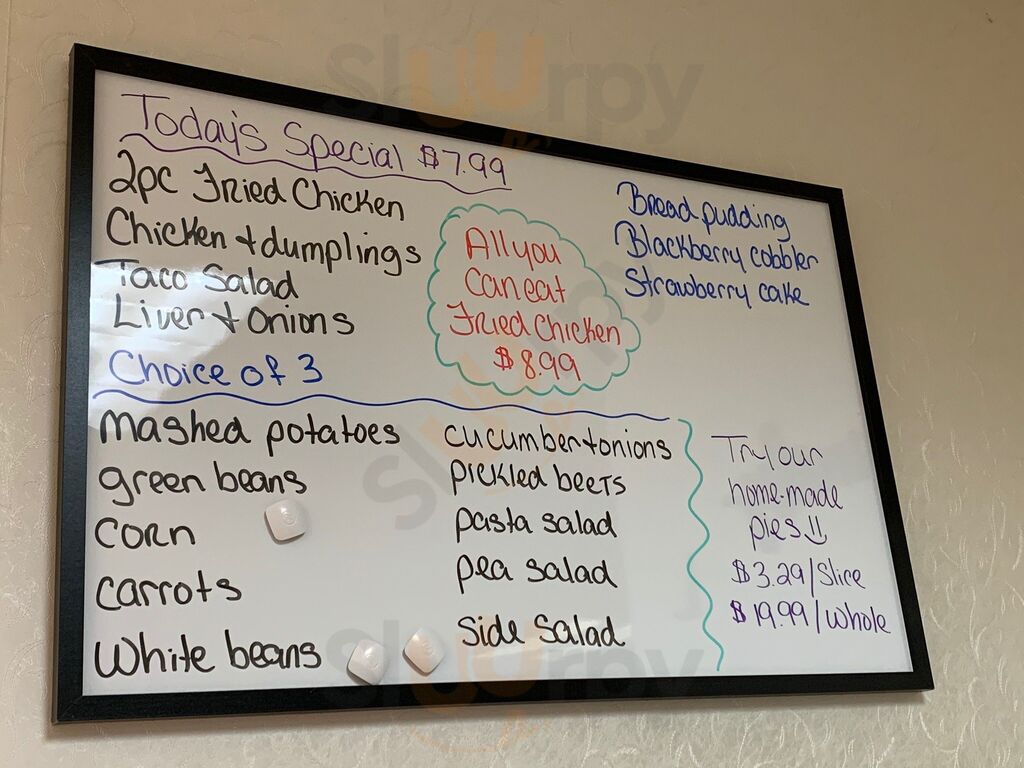 Today's Special $7.99
2pc Fried Chicken
Chicken + dumplings
Taco Salad
Liver + onions
All you
Can eat
Fried Chicken
$8.99
Bread pudding
Blackberry cobbler
Strawberry cake
Choice of 3
mashed potatoes
green beans
corn
carrots
White beans
cucumber + onions
pickled beets
pasta salad
pea salad
side salad
Try our
home-made
pies
$3.29/Slice
$19.99/whole
Sluurpy
Sluurpy
Sluurpy